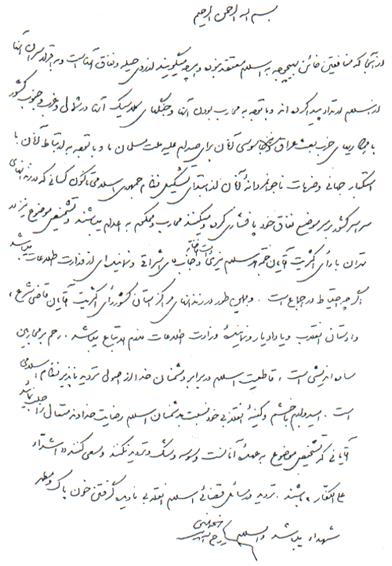 بسم الله الرحمن الرحیم
از آنجا که منافقین خائن بهیچوجه به اسلام معتقد نبوده و هر چه میگویند از روی حیله و نفاق آنهاست و به اقرار سران آنها
از اسلام ارتداد پیدا کرده‌اند و با توجه به محارب بودن آنها و جنگهای کلاسیک آنها در شمال و غرب و جنوب کشور
با همکاریهای حزب بعث عراق و نیز جاسوسی آنان برای صدام علیه ملت مسلمان ما و با توجه به ارتباط آنان با
استکبار جهانی و ضربات ناجوانمردانه آنان از ابتدای تشکیل نظام جمهوری اسلامی تا کنون کسانی که در زندانهای
سراسر کشور بر سر موضع نفاق خود پافشاری کرده و میکنند محارب و محکوم به اعدام میباشند و تشخیص موضوع نیز در
تهران با رای اکثریت آقایان حجة الاسلام نیری دامت افاضاته و جناب آقای اشراقی و نماینده‌ای از وزارت اطلاعات میباشد
اگر چه احتیاط در اجماع است . و همین طور در زندانهای مراکز استان کشور رای اکثریت آقایان قاضی شرع ،
دادستان انقلاب و یا دادیار و نماینده وزارت اطلاعات لازم الاتباع میباشد . رحم بر محاربین
ساده اندیشی است ، قاطعیت اسلام در برابر دشمنان خدا از اصول تردید ناپذیر نظام اسلامی
است . امیدوارم با خشم و کینه انقلابی خود نسبت به دشمنان اسلام رضایت خداوند متعال را جلب نمائید
آقایانی که تشخیص موضوع به عهده آنان است وسوسه و شک و تردید نکنند و سعی کنند « اشداء
علی الکفار » باشند . تردید در مسائل قضائی اسلام انقلابی نادیده گرفتن خون پاک و مطهر
شهداء میباشد والسلام
روح الله الموسوی الخمینی